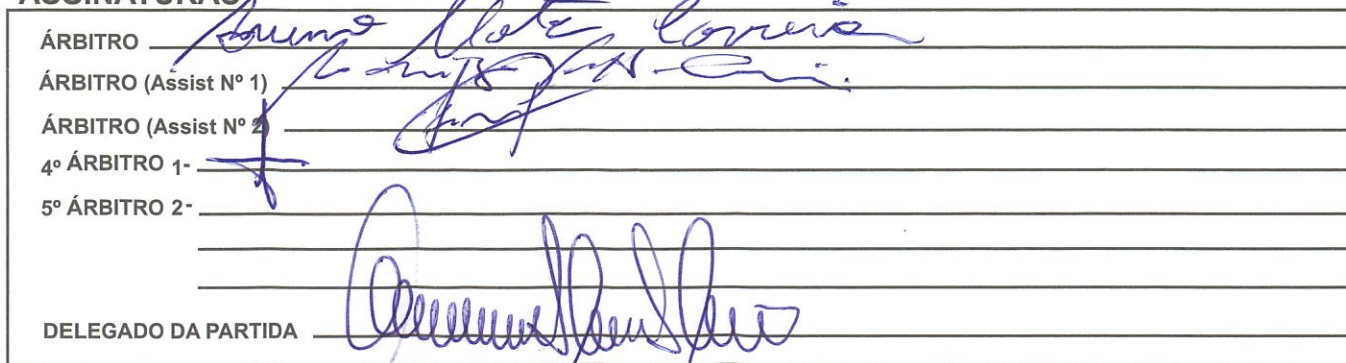 ASSINATURAS
ÁRBITRO Bruno Mota Correia
ÁRBITRO (Assist Nº 1)
ÁRBITRO (Assist Nº 2)
4º ÁRBITRO 1-
5º ÁRBITRO 2-
DELEGADO DA PARTIDA